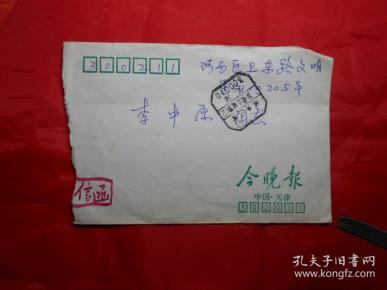 300211
河西区卫东路文明
205号
李中原
信函
今晚报
中国·天津
300020
孔夫子旧书网
www.kongfz.com